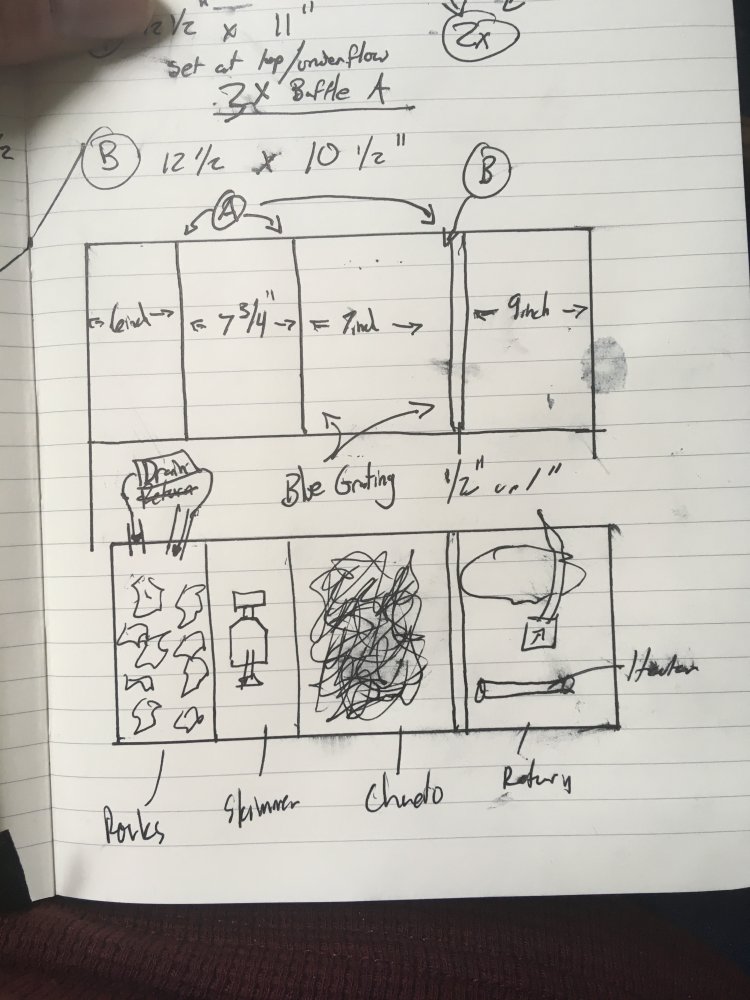 2 1/2" x 11"
2x
set at top/underflow
2X Baffle A
B 12 1/2 x 10 1/2"
A
B
6 inch
7 3/4"
9 inch
Drain
Return
Blue Grating
1/2" or 1"
Heater
Rocks
Skimmer
Chaeto
Return